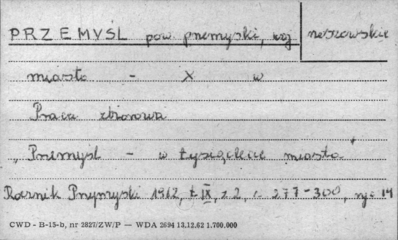 PRZEMYŚL pow przemyski, woj rzeszowskie
miasto - X w
Praca zbiorowa
„Przemyśl - w tysiąclecie miasta"
Rocznik Przemyski 1962, t IX, z 2, s. 277-300, ryc 14
CWD - B-15-b, nr 2827/ZW/P — WDA 2694 13.12.62 1.700.000